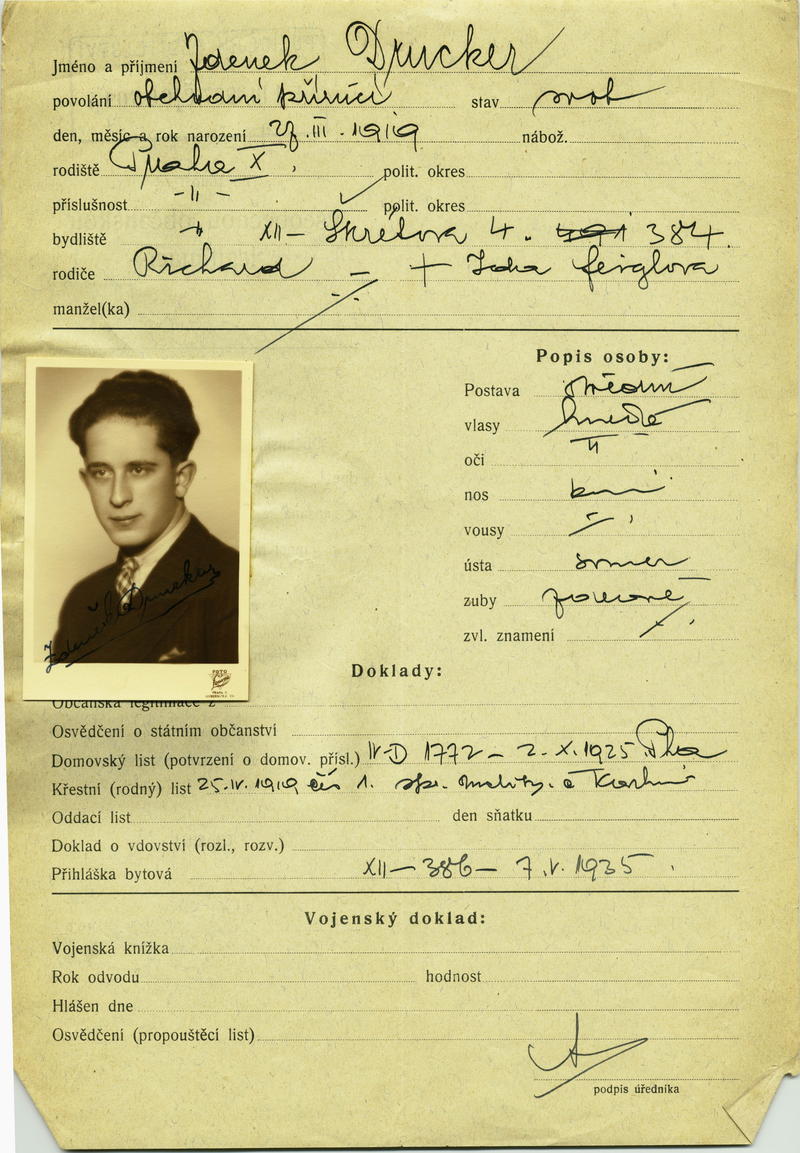 Jméno a příjmení Zdenek Drucker
povolání obchodní příručí stav svob
den, měsíc a rok narození 27. III. 1919 nábož.
rodiště Praha X polit. okres
příslušnost -"- polit. okres
bydliště XII - Škrétova 4. 384.
rodiče Richard - + Ida Feiglova
manžel(ka)
Popis osoby:
Postava střední
vlasy hnědé
oči "
nos
vousy
ústa
zuby
zvl. znamení
Zdeněk Drucker
FOTO
Doklady:
Občanská legitimace č
Osvědčení o státním občanství
Domovský list (potvrzení o domov. přísl.) IV-D 1772 - 2.X.1925 Pha
Křestní (rodný) list 25.IV.1919 čís 1. žid. matriky. v Karlíně
Oddací list den sňatku
Doklad o vdovství (rozl., rozv.)
Přihláška bytová XII - 386 - 7.V.1935
Vojenský doklad:
Vojenská knížka
Rok odvodu hodnost
Hlášen dne
Osvědčení (propouštěcí list)
podpis úředníka